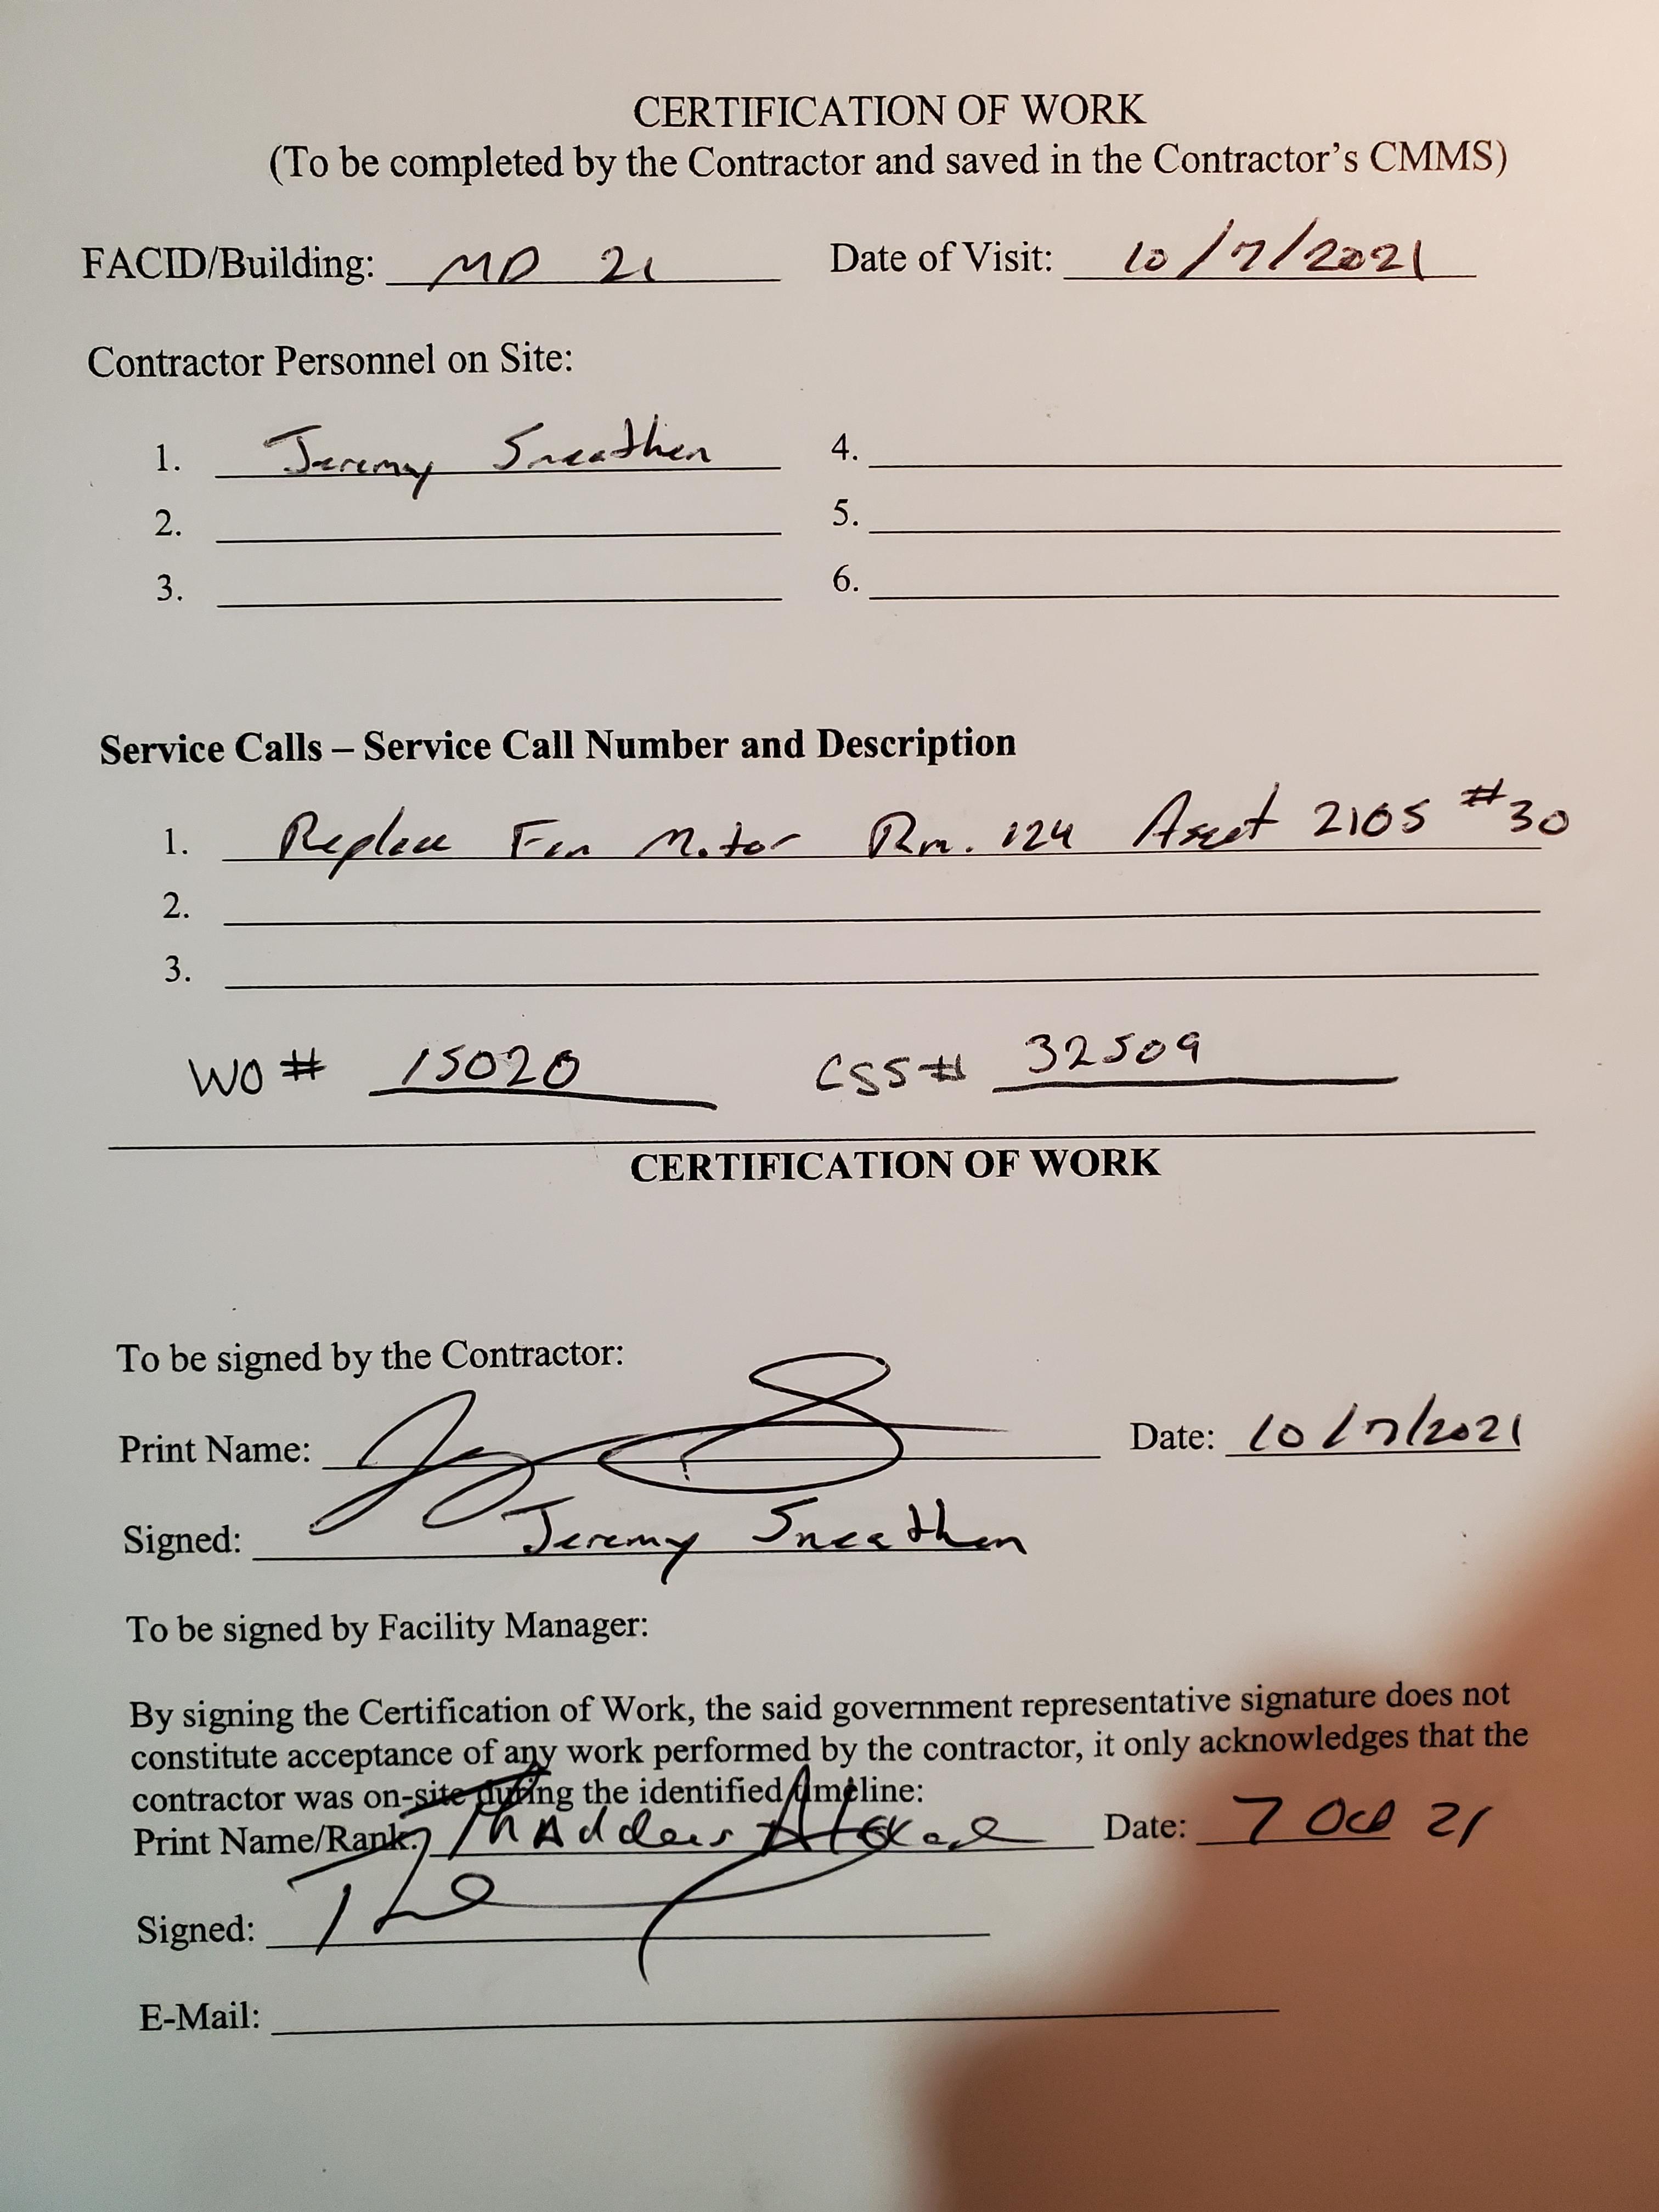 CERTIFICATION OF WORK
(To be completed by the Contractor and saved in the Contractor's CMMS)
FACID/Building: MD 21 Date of Visit: 10/7/2021
Contractor Personnel on Site:
1. Jeremy Sneathen 4.
2. 5.
3. 6.
Service Calls – Service Call Number and Description
1. Replace Fan Motor Rm. 124 Asset 2105 #30
2.
3.
WO # 15020 CSS# 32509
CERTIFICATION OF WORK
To be signed by the Contractor:
Print Name: Date: 10/7/2021
Signed: Jeremy Sneathen
To be signed by Facility Manager:
By signing the Certification of Work, the said government representative signature does not
constitute acceptance of any work performed by the contractor, it only acknowledges that the
contractor was on-site during the identified timeline:
Print Name/Rank: Date: 7 Oct 21
Signed:
E-Mail: